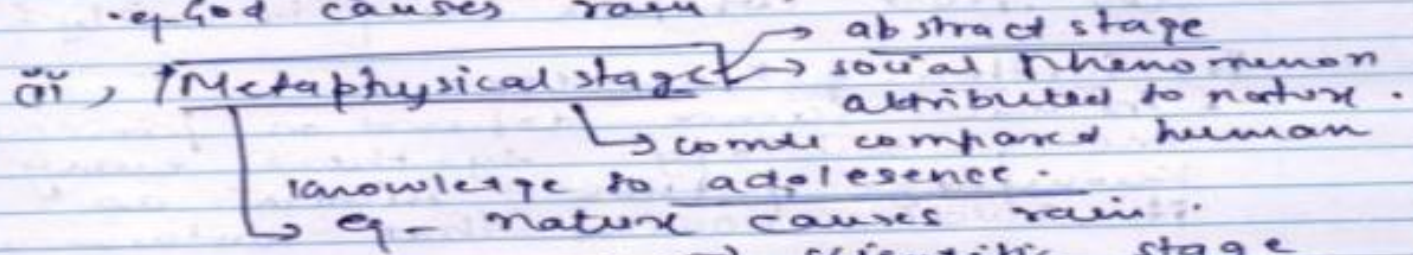 ·eg God causes rain
ii, Metaphysical stage → abstract stage
→ social Phenomenon
attributed to nature.
↳ comte compared human
knowledge to adolesence.
↳ eg - nature causes rain.
scientific stage